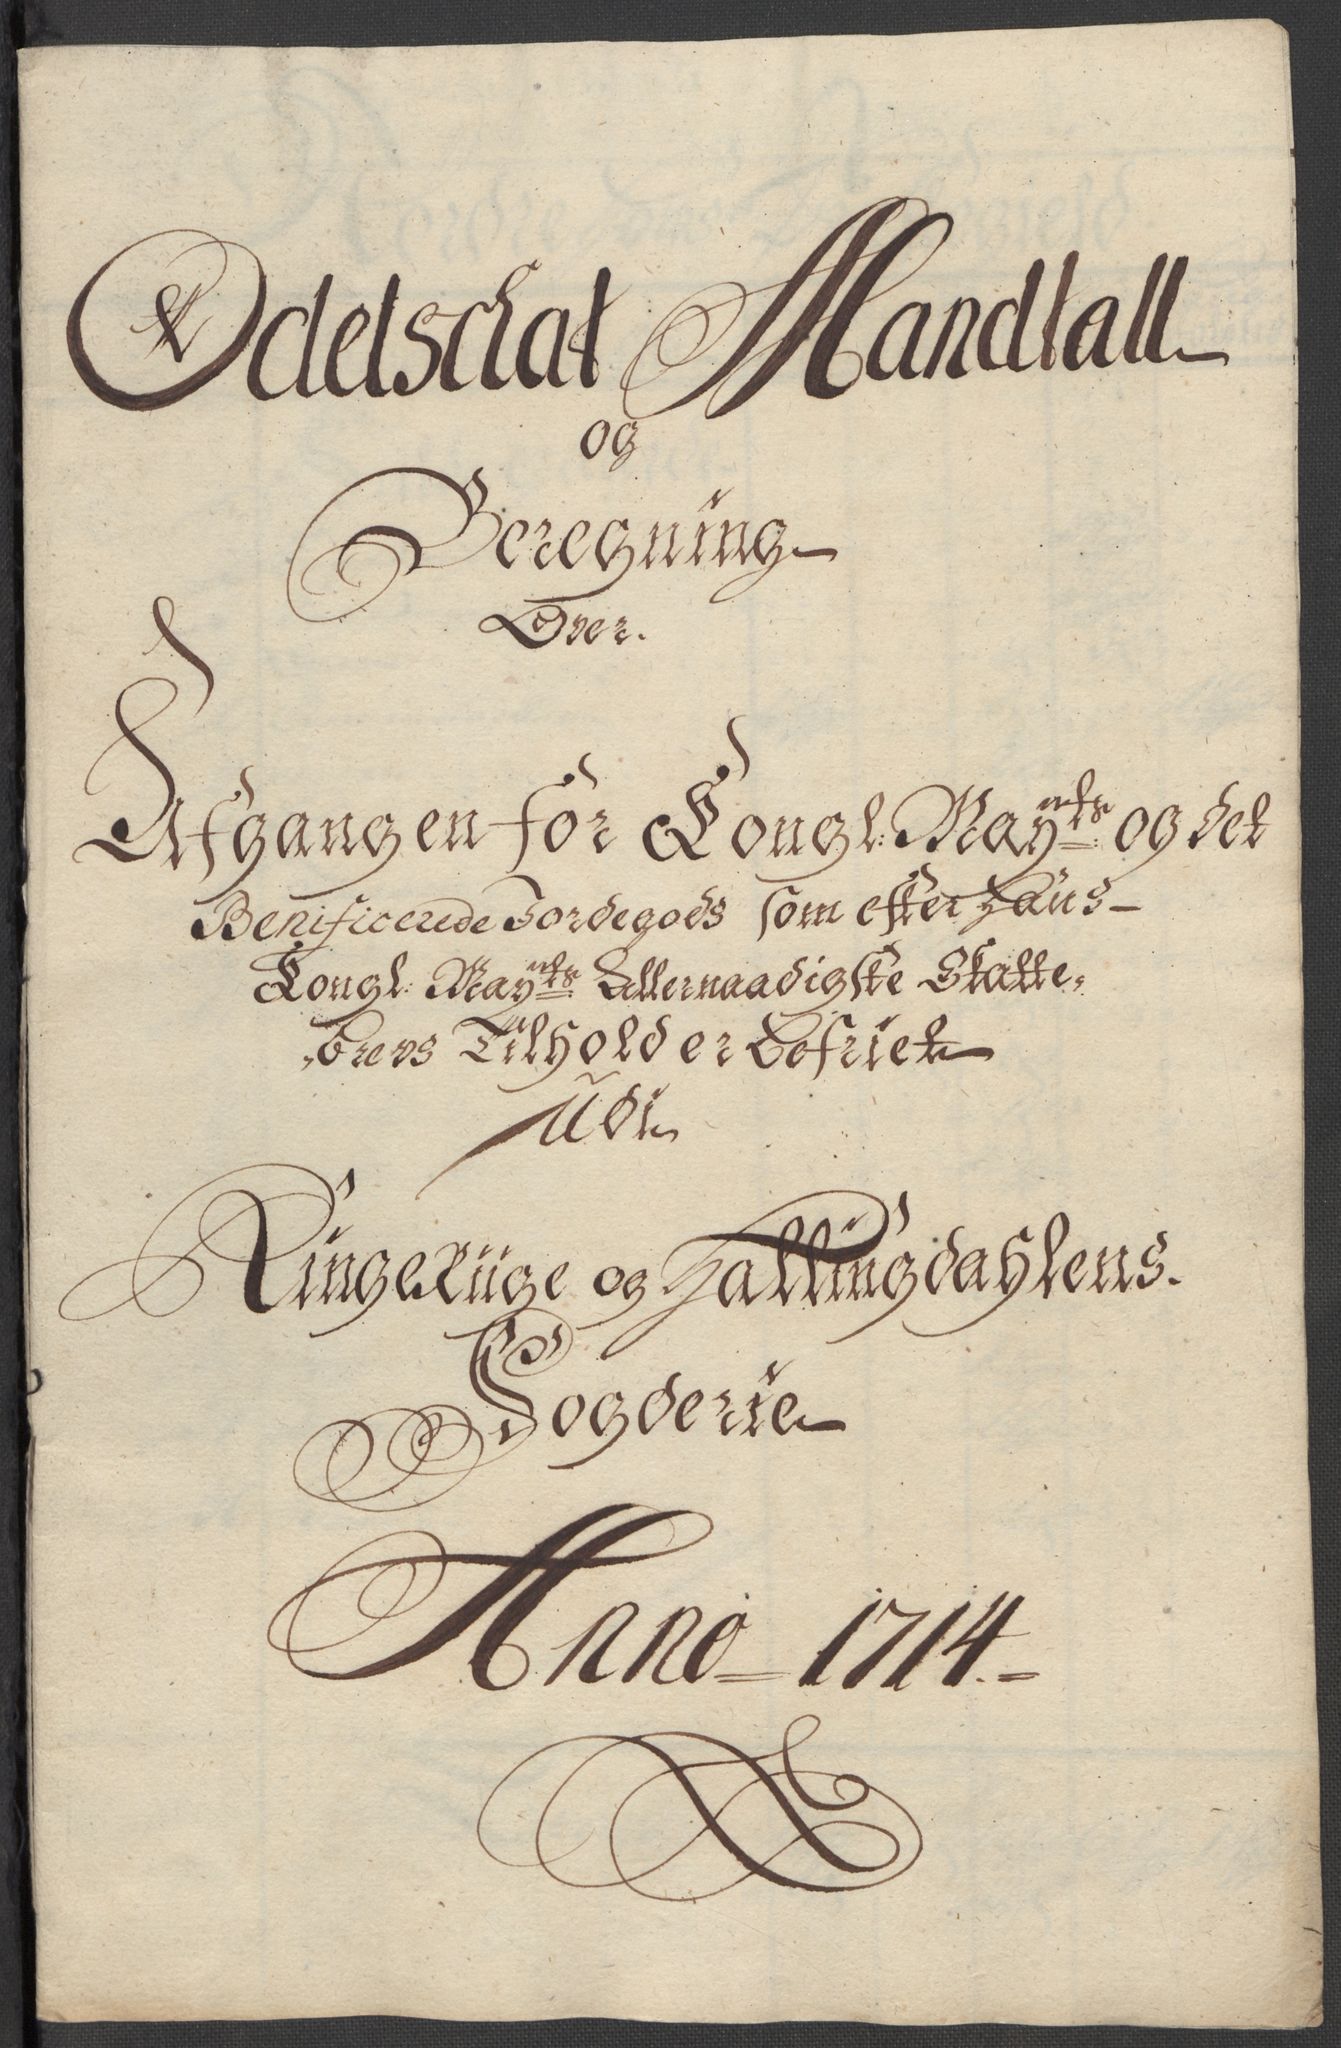 Odelschat Mandtall
og
Beregning
Over.
Afgangen for Congl: Mayts: og det
Benificerede Jordegods som efter hans
Congl: Mayts: Allernaadigste Skatte,
,brevs Tilhold er befriet
Udi
Ringeriige og Hallingdahlens.
Fogderie
Anno 1714.